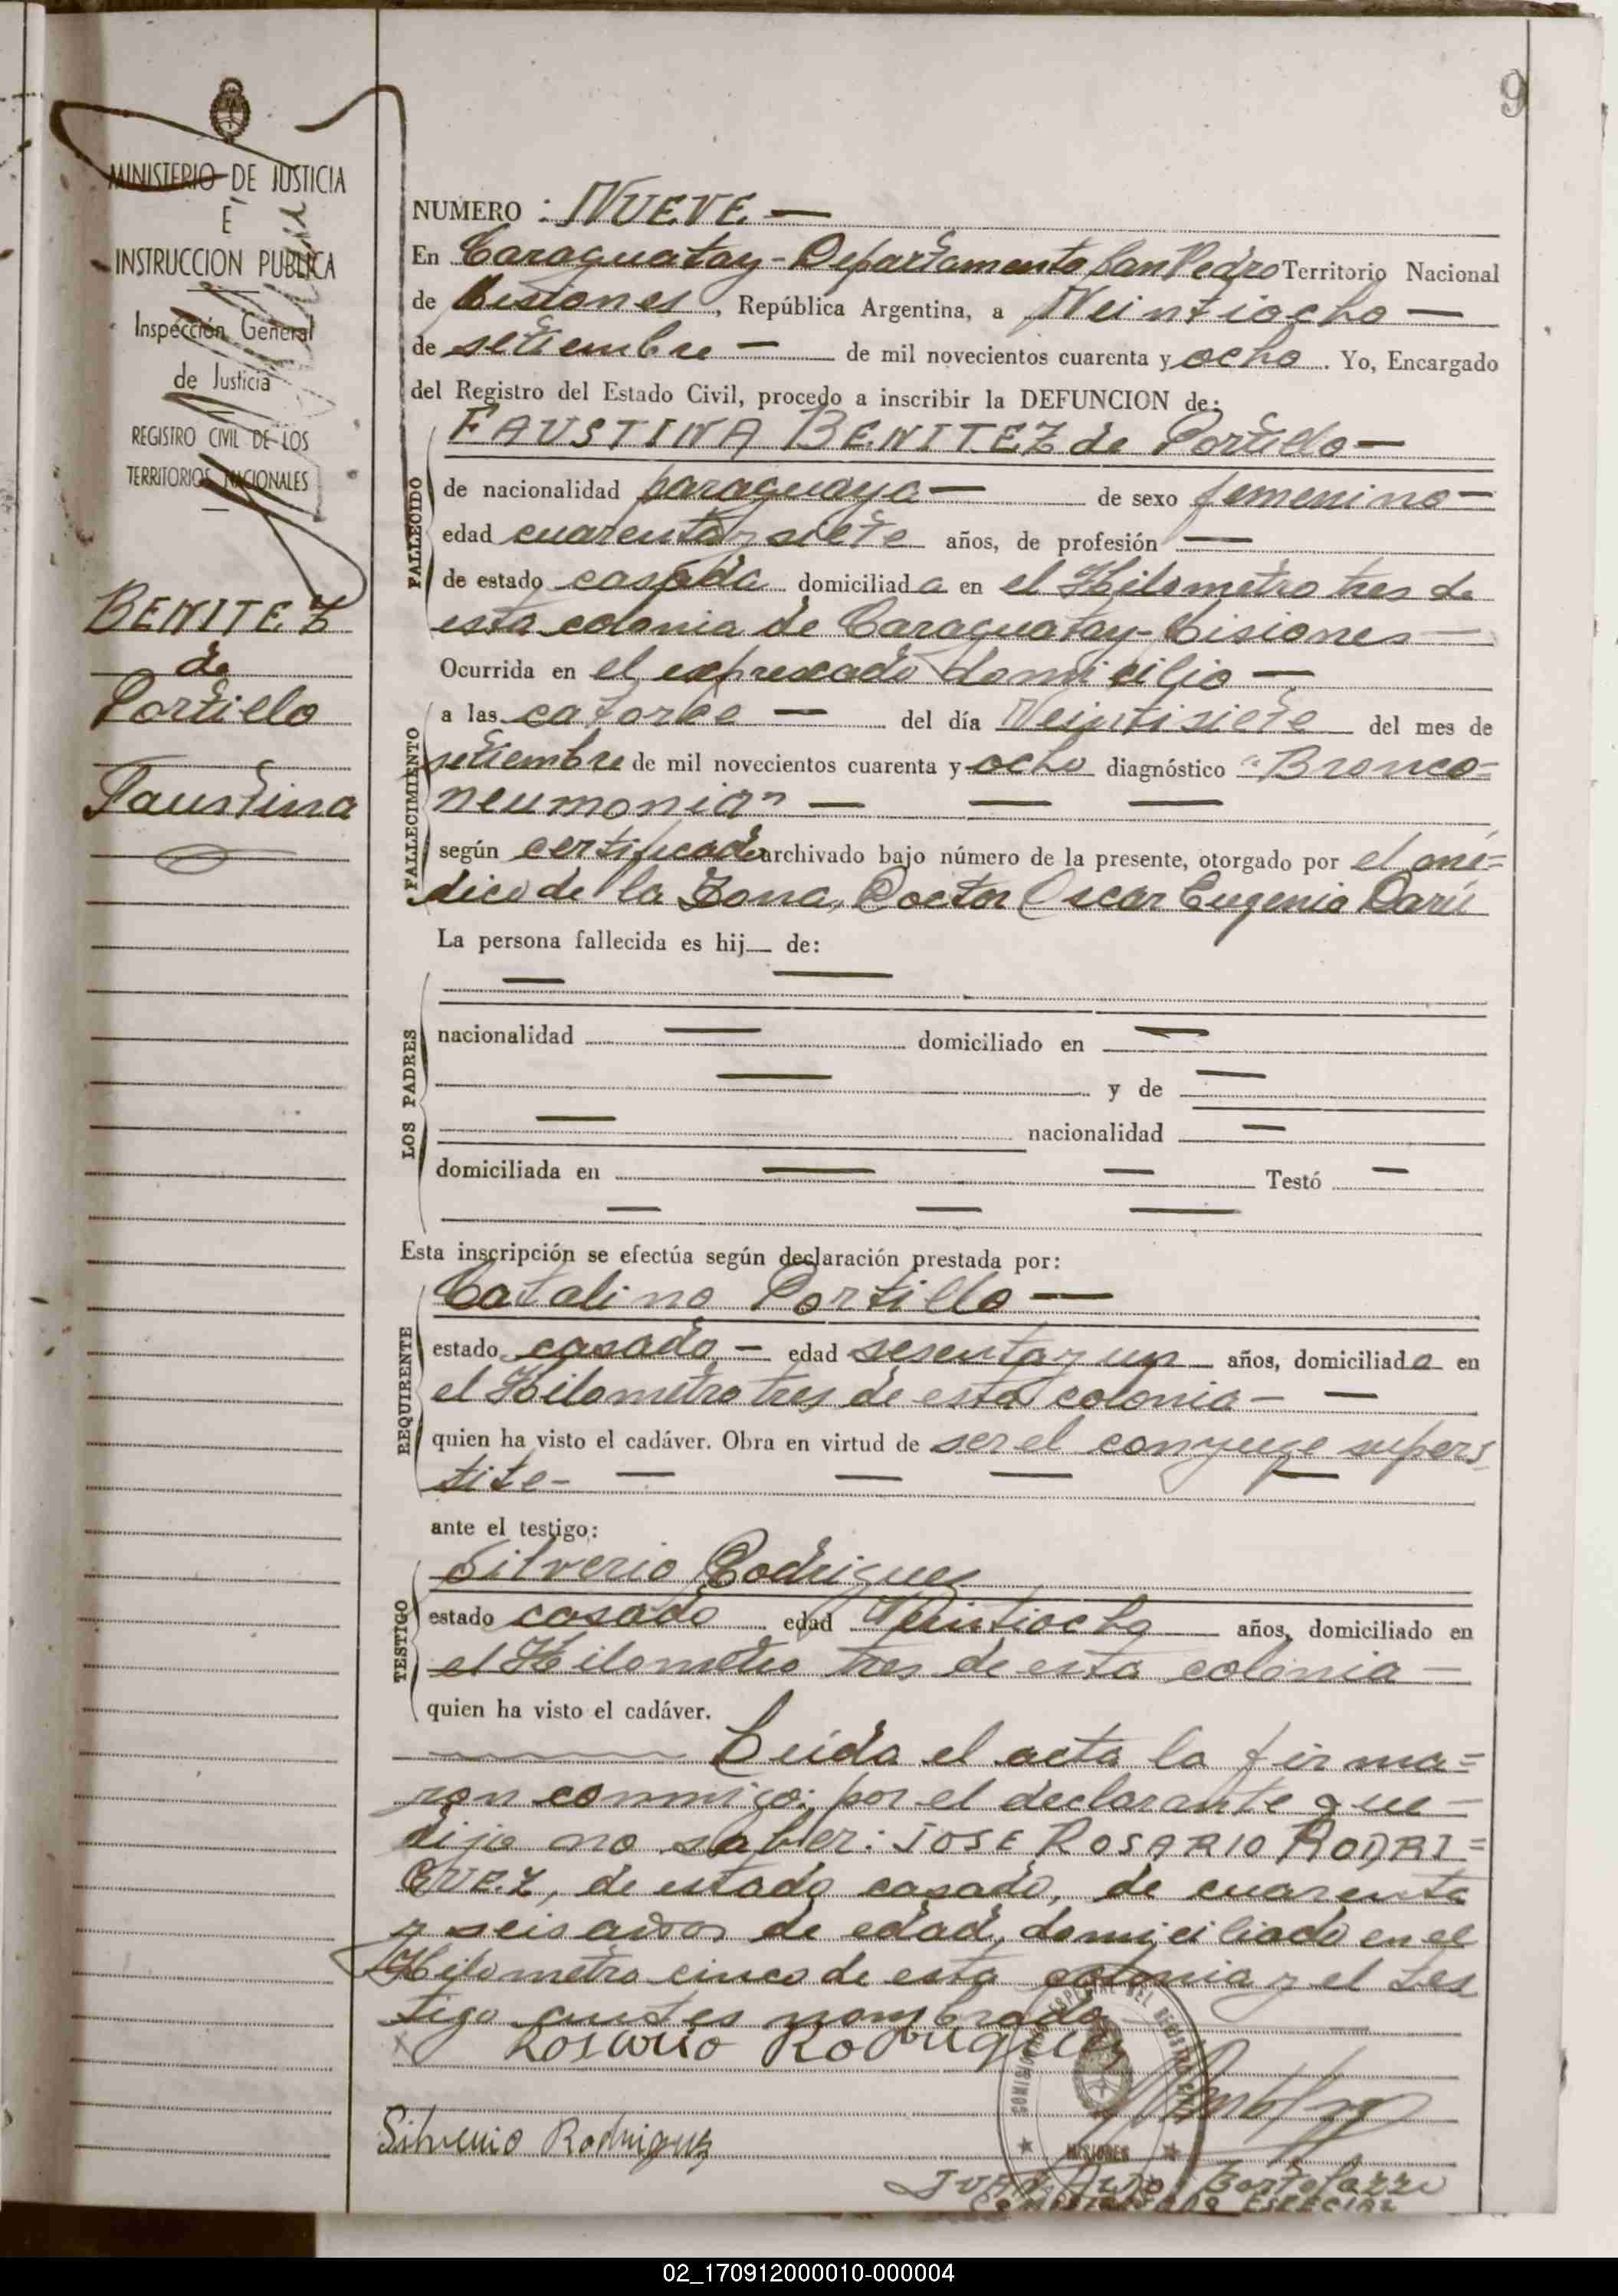 9
MINISTERIO DE JUSTICIA
É
INSTRUCCION PUBLICA
Inspección General
de Justicia
REGISTRO CIVIL DE LOS
TERRITORIOS NACIONALES
BENITEZ
de
Portillo
Faustina
NUMERO : NUEVE —
En Caraguatay - Departamento San Pedro Territorio Nacional
de Misiones, República Argentina, a Veintiocho —
de setiembre — de mil novecientos cuarenta y ocho. Yo, Encargado
del Registro del Estado Civil, procedo a inscribir la DEFUNCION de:
FAUSTINA BENITEZ de Portillo —
FALLECIDO
de nacionalidad paraguaya — de sexo femenino —
edad cuarenta y siete años, de profesión —
de estado casada domiciliada en el Kilometro tres de
esta colonia de Caraguatay - Misiones —
Ocurrida en el expresado domicilio —
FALLECIMIENTO
a las catorce — del día Veintisiete del mes de
setiembre de mil novecientos cuarenta y ocho diagnóstico "Bronco=
neumonia" — — —
según certificado archivado bajo número de la presente, otorgado por el mé=
dico de la Zona, Doctor Oscar Eugenio Darú
La persona fallecida es hij— de:
LOS PADRES
— —
nacionalidad — domiciliado en —
— y de —
— nacionalidad —
domiciliada en — — Testó —
— — —
Esta inscripción se efectúa según declaración prestada por:
REQUIRENTE
Catalino Portillo —
estado casado — edad sesenta y un años, domiciliado en
el Kilometro tres de esta colonia — —
quien ha visto el cadáver. Obra en virtud de ser el conyuge supers
tite — — — —
ante el testigo:
TESTIGO
Silverio Rodriguez
estado casado edad Veintiocho años, domiciliado en
el Kilometro tres de esta colonia —
quien ha visto el cadáver.
Leída el acta la firma=
ron conmigo: por el declarante que
dijo no saber: JOSE ROSARIO RODRI=
GUEZ, de estado casado, de cuarenta
y seis años de edad, domiciliado en el
Kilometro cinco de esta colonia y el tes
tigo antes nombrado
Rosario Rodriguez
Silverio Rodriguez
MISIONES
Bortolazzi
COMISIONADO ESPECIAL
02_170912000010-000004